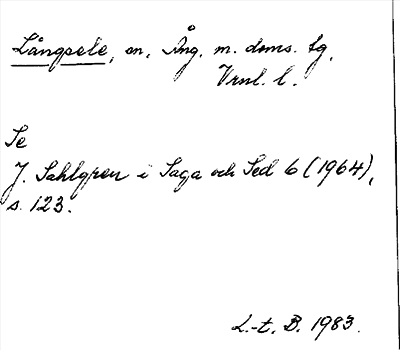 Långsele, on. Ång. m. doms. tg.
Vrnl. l.
Se
J. Sahlgren i Saga och Sed 6 (1964),
s. 123.
L.-t. B. 1983.